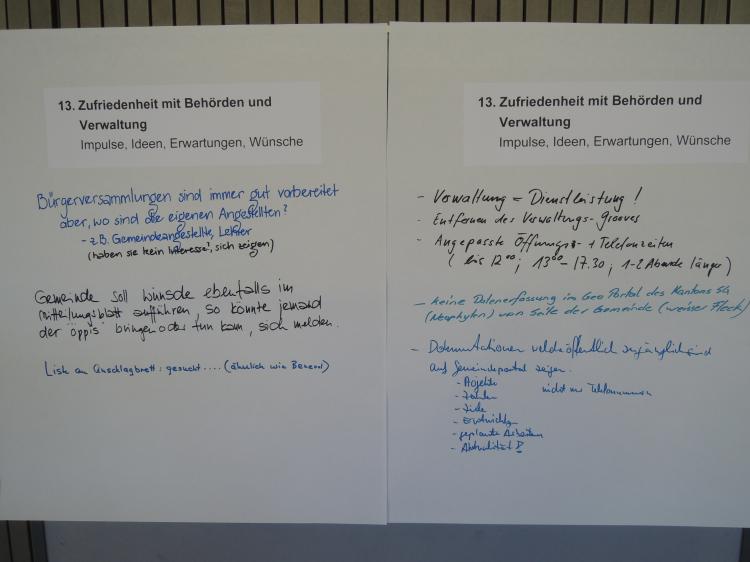 13. Zufriedenheit mit Behörden und
Verwaltung
Impulse, Ideen, Erwartungen, Wünsche
Bürgerversammlungen sind immer gut vorbereitet
aber, wo sind die eigenen Angestellten?
- z.B. Gemeindeangestellte, Lehrer
(haben sie kein Interesse?, sich zeigen)
Gemeinde soll wünsche ebenfalls im
mitteilungsblatt aufführen, so könnte jemand
der "öppis" bringen oder tun kann, sich melden.
Liste an Anschlagbrett: gesucht .... (ähnlich wie Benevol)
13. Zufriedenheit mit Behörden und
Verwaltung
Impulse, Ideen, Erwartungen, Wünsche
- Verwaltung = Dienstleistung !
- Entfernen des Verwaltungs-Grooves
- Angepasste Öffnungs- + Telefonzeiten
( bis 12°°; 13°° - 17.30; 1-2 Abende länger)
- Keine Datenerfassung im Geo Portal des Kantons SG
(Neophyten) von Seite der Gemeinde (weisser Fleck)
- öffentlich
auf Gemeindeportal zeigen.
- Projekte nicht nur Telefonnummern
- Ziele
- geplante Arbeiten
- Aktualität !